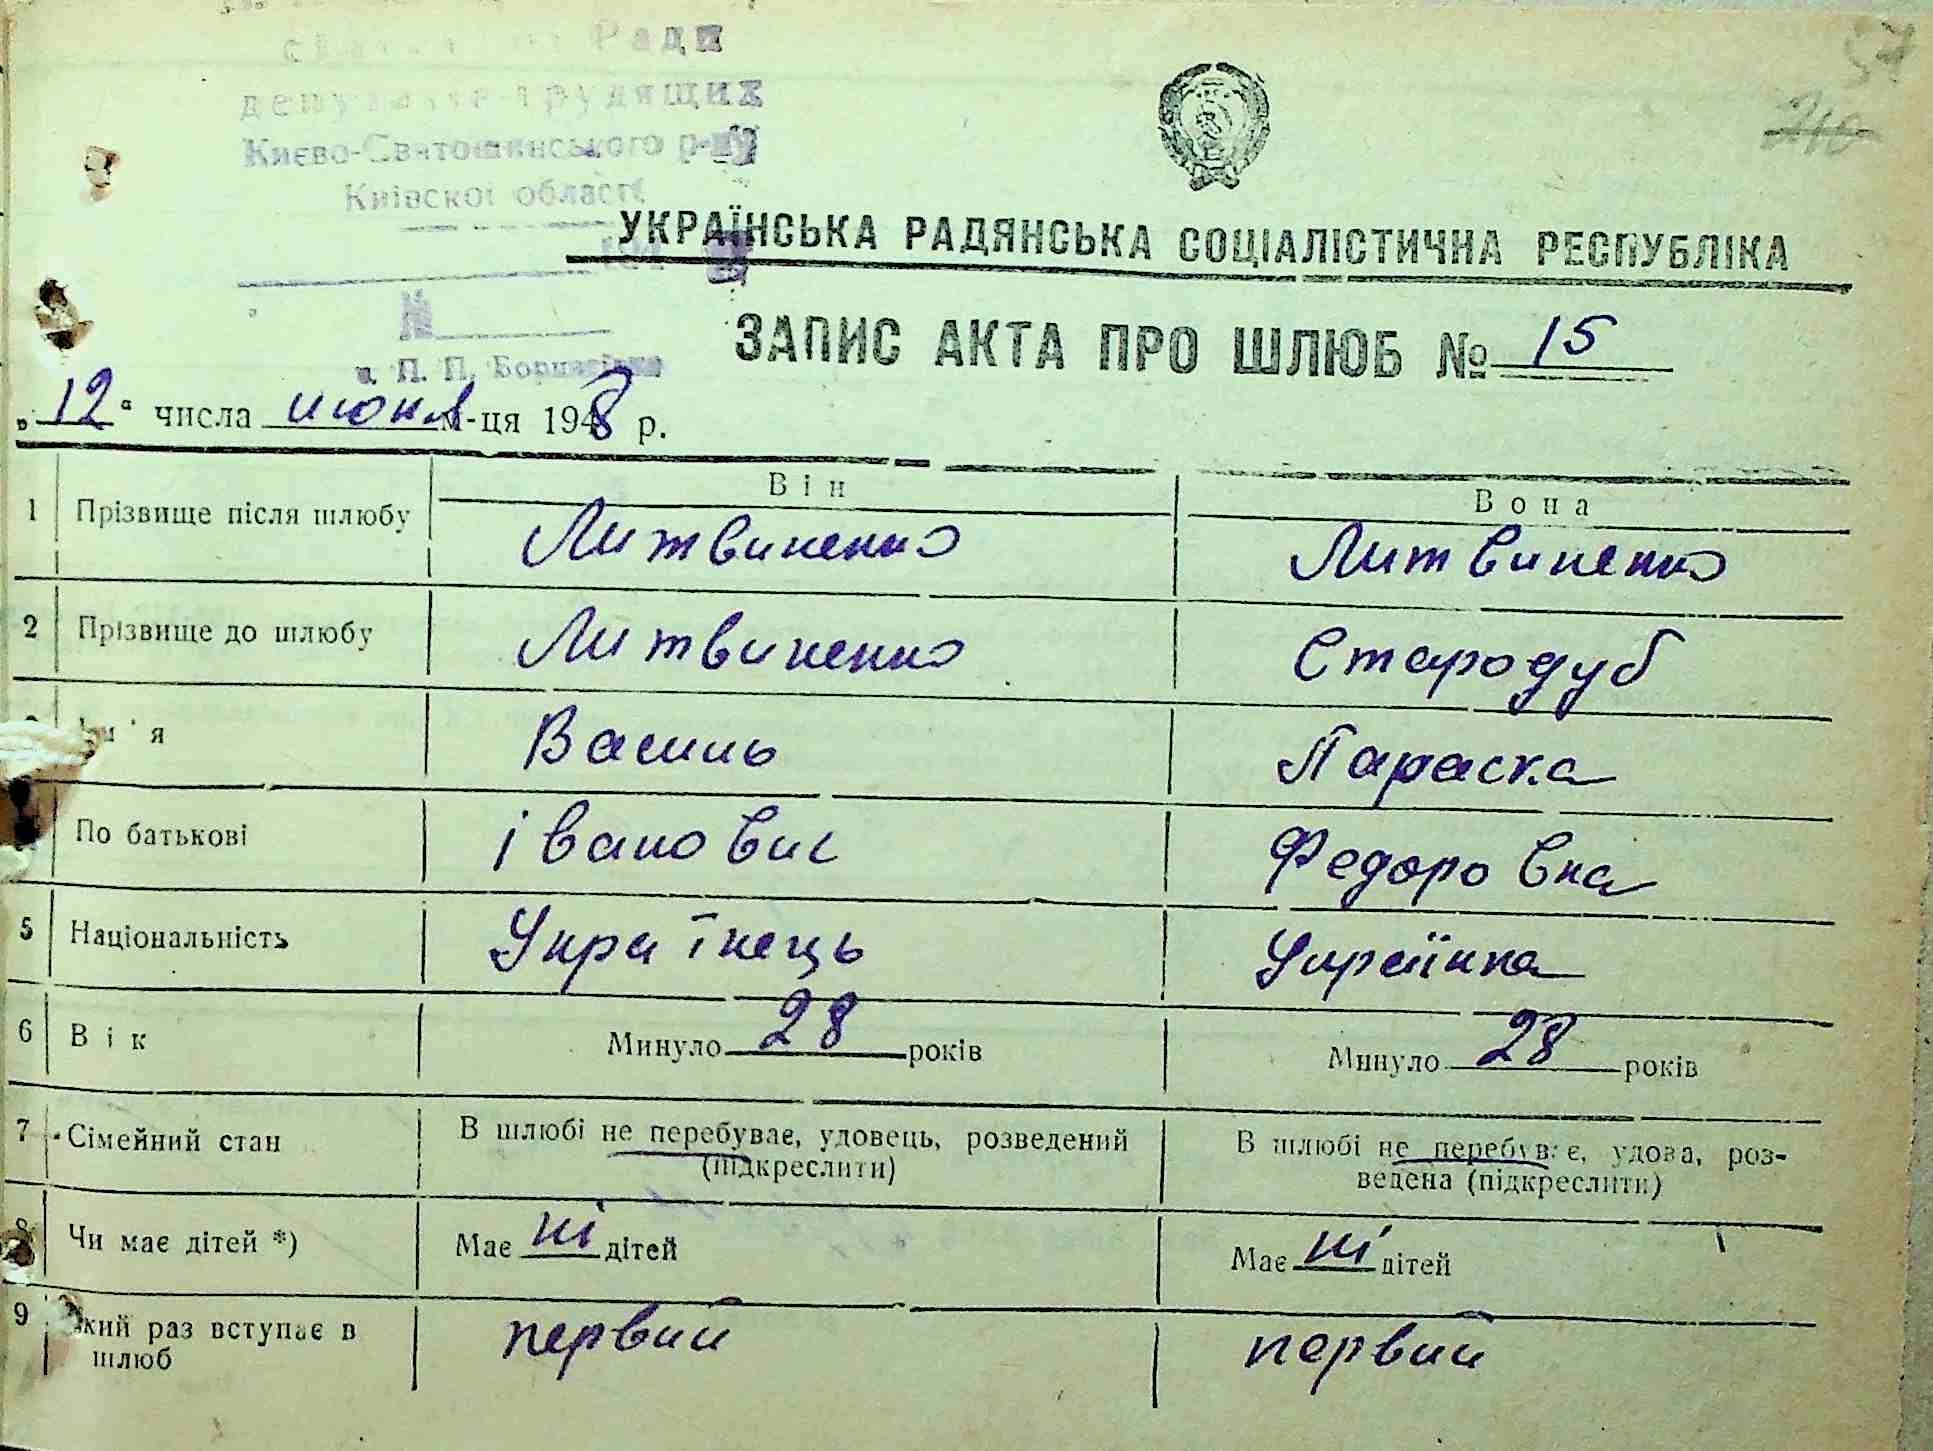 Ради
депутатів трудящих
Києво-Святошинського р-ну
Київської області
57
210
УКРАЇНСЬКА РАДЯНСЬКА СОЦІАЛІСТИЧНА РЕСПУБЛІКА
№
ЗАПИС АКТА ПРО ШЛЮБ № 15
п. П. П. Борщагівка
„12“ числа июня м-ця 1948 р.
Він Вона
1 Прізвище після шлюбу Литвиненко Литвиненко
2 Прізвище до шлюбу Литвиненко Стародуб
Ім'я Василь Параска
По батькові івановис Федоровна
5 Національність Українець Українка
6 Вік Минуло 28 років Минуло 28 років
7 Сімейний стан В шлюбі не перебуває, удовець, розведений (підкреслити) В шлюбі не перебуває, удова, роз-
ведена (підкреслити)
8 Чи має дітей *) Має ні дітей Має ні дітей
9 який раз вступає в первий первий
шлюб